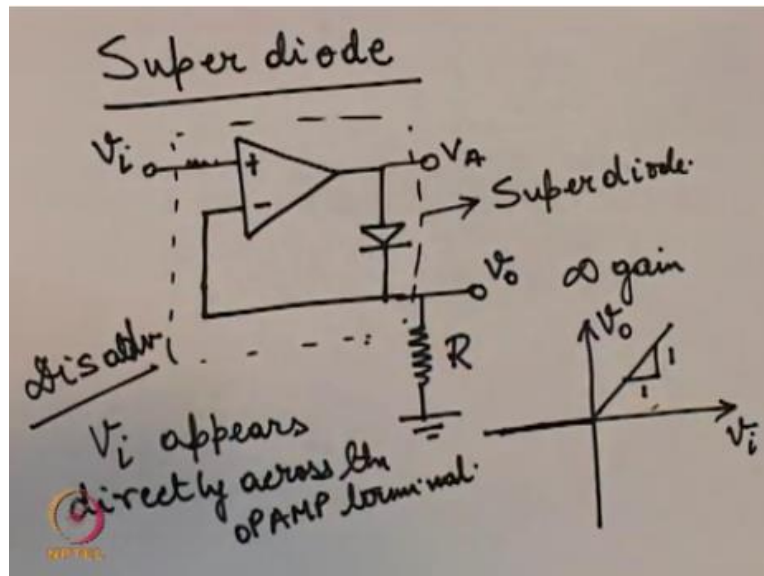 Super diode
Vi
+
VA
-
Super diode.
Vo
∞ gain
Vo
R
1
1
Vi
Disadv.
Vi appears
directly across the
OPAMP terminal.
NPTEL